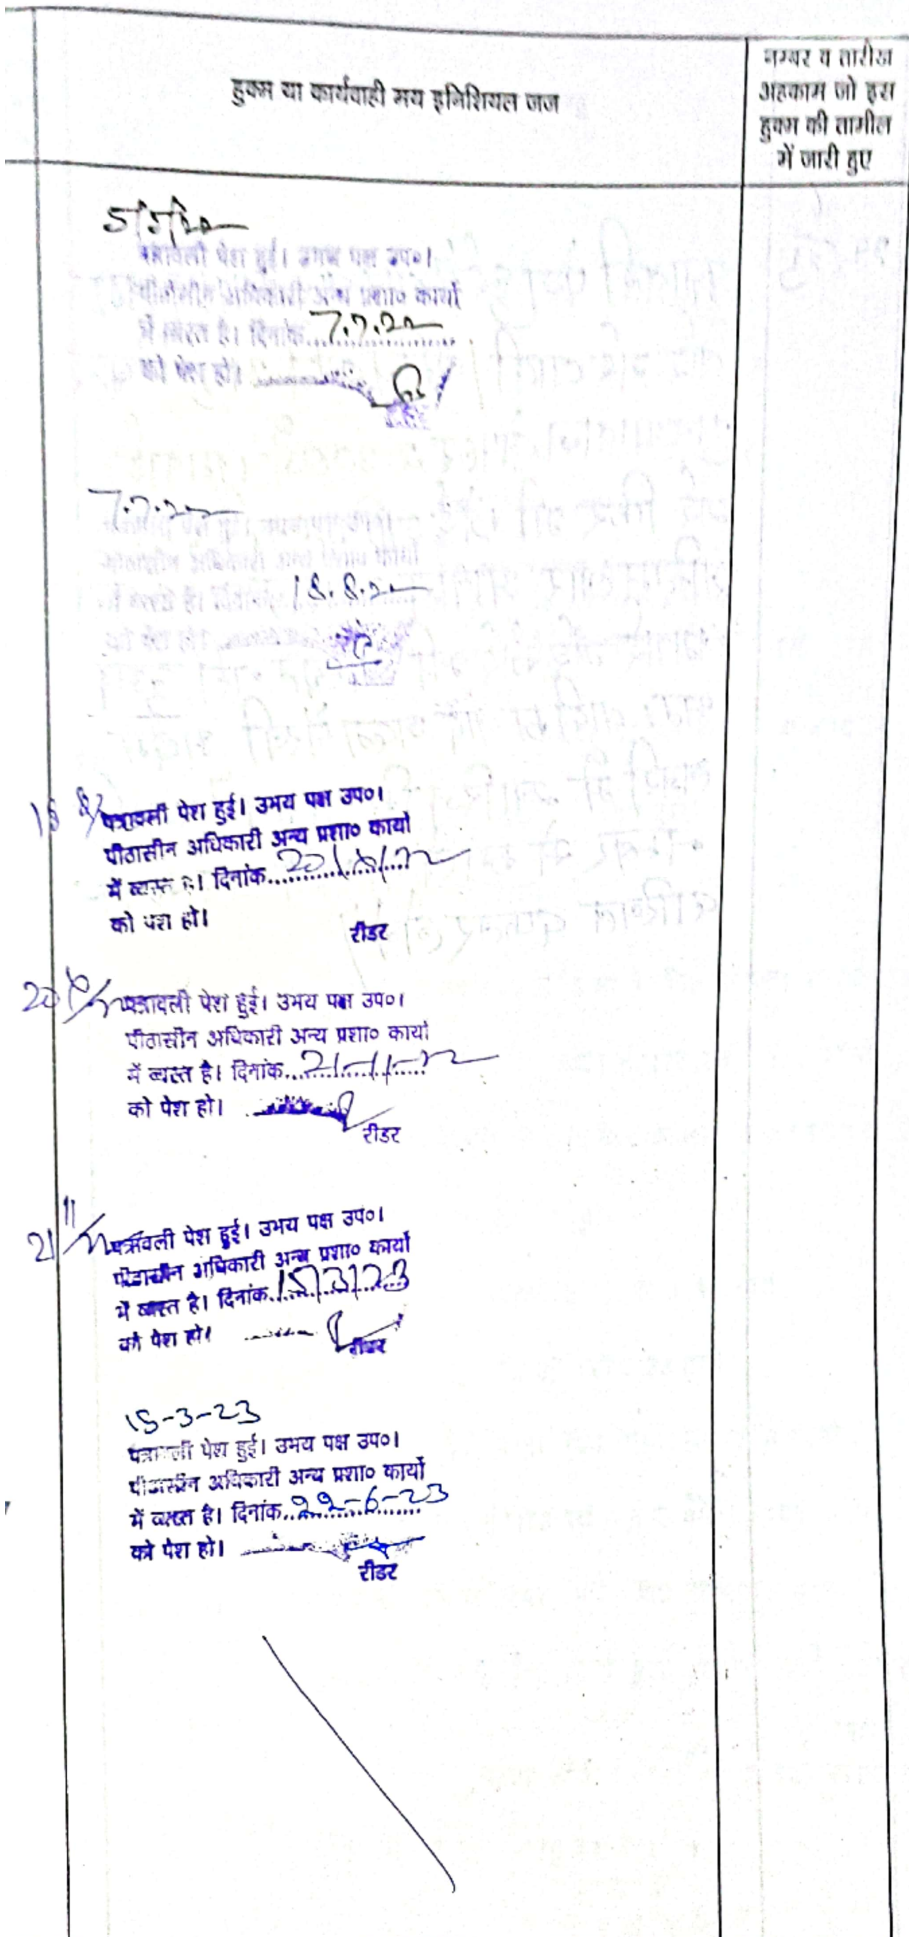 हुक्म या कार्यवाही मय इनिशियल जज
नम्बर व तारीख
अहकाम जो इस
हुक्म की तामील
में जारी हुए
5/5/22
पत्रावली पेश हुई। उभय पक्ष उप०।
पीठासीन अधिकारी अन्य प्रशा० कार्यो
में व्यस्त है। दिनांक..7.7.22
को पेश हो।
7.7.22
पीठासीन अधिकारी अन्य प्रशा० कार्यो
में व्यस्त है। दिनांक 18.8.22
को पेश हो।
18/8/
पत्रावली पेश हुई। उभय पक्ष उप०।
पीठासीन अधिकारी अन्य प्रशा० कार्यो
में व्यस्त है। दिनांक..20/ /22
को पेश हो।
रीडर
20/ /22 पत्रावली पेश हुई। उभय पक्ष उप०।
पीठासीन अधिकारी अन्य प्रशा० कार्यो
में व्यस्त है। दिनांक..21-11-22
को पेश हो।
रीडर
21/11/22 पत्रावली पेश हुई। उभय पक्ष उप०।
पीठासीन अधिकारी अन्य प्रशा० कार्यो
में व्यस्त है। दिनांक..15/3/23
को पेश हो।
रीडर
15-3-23
पत्रावली पेश हुई। उभय पक्ष उप०।
पीठासीन अधिकारी अन्य प्रशा० कार्यो
में व्यस्त है। दिनांक..22-6-23
को पेश हो।
रीडर